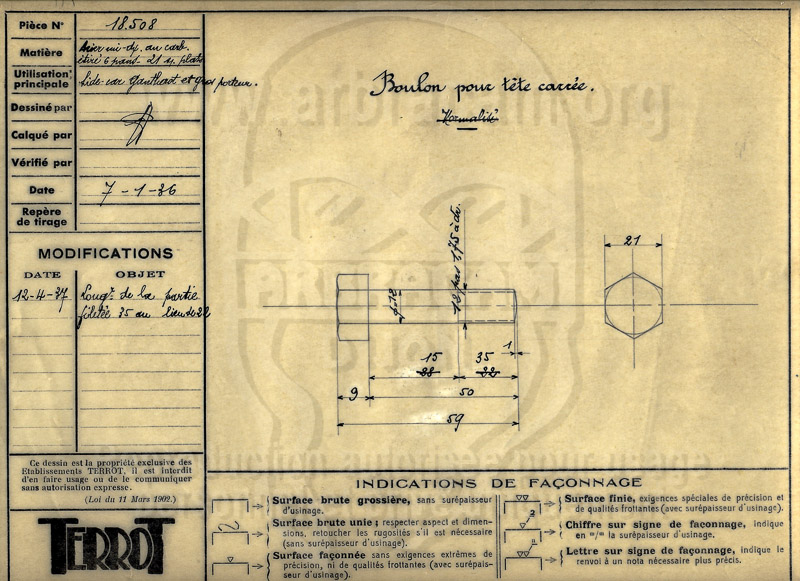 Pièce N° 18.508
Matière Acier mi-dx. au carb.
étiré 6 pans - 21 s. plats
Utilisation principale Side-car Gauthroot et gros porteur.
Dessiné par
Calqué par
Vérifié par
Date 7-1-36
Repère de tirage
MODIFICATIONS
DATE OBJET
12-4-37 Longr. de la partie
filetée 35 au lieu de 22
Ce dessin est la propriété exclusive des
Etablissements TERROT, il est interdit
d'en faire usage ou de le communiquer
sans autorisation expresse.
(Loi du 11 Mars 1902.)
TERROT
Boulon pour tête carrée.
Normalisé
12 pas 1,75 à dr.
ø 12
21
1
15 35
28 22
9 50
59
INDICATIONS DE FAÇONNAGE
Surface brute grossière, sans surépaisseur
d'usinage.
Surface brute unie ; respecter aspect et dimen-
sions, retoucher les rugosités s'il est nécessaire
(sans surépaisseur d'usinage).
Surface façonnée sans exigences extrêmes de
précision, ni de qualités frottantes (avec surépais-
seur d'usinage).
Surface finie, exigences spéciales de précision et
de qualités frottantes (avec surépaisseur d'usinage).
Chiffre sur signe de faconnage, indique
en =/= la surépaisseur d'usinage.
Lettre sur signe de façonnage, indique le
renvoi à un nota nécessaire plus précis.